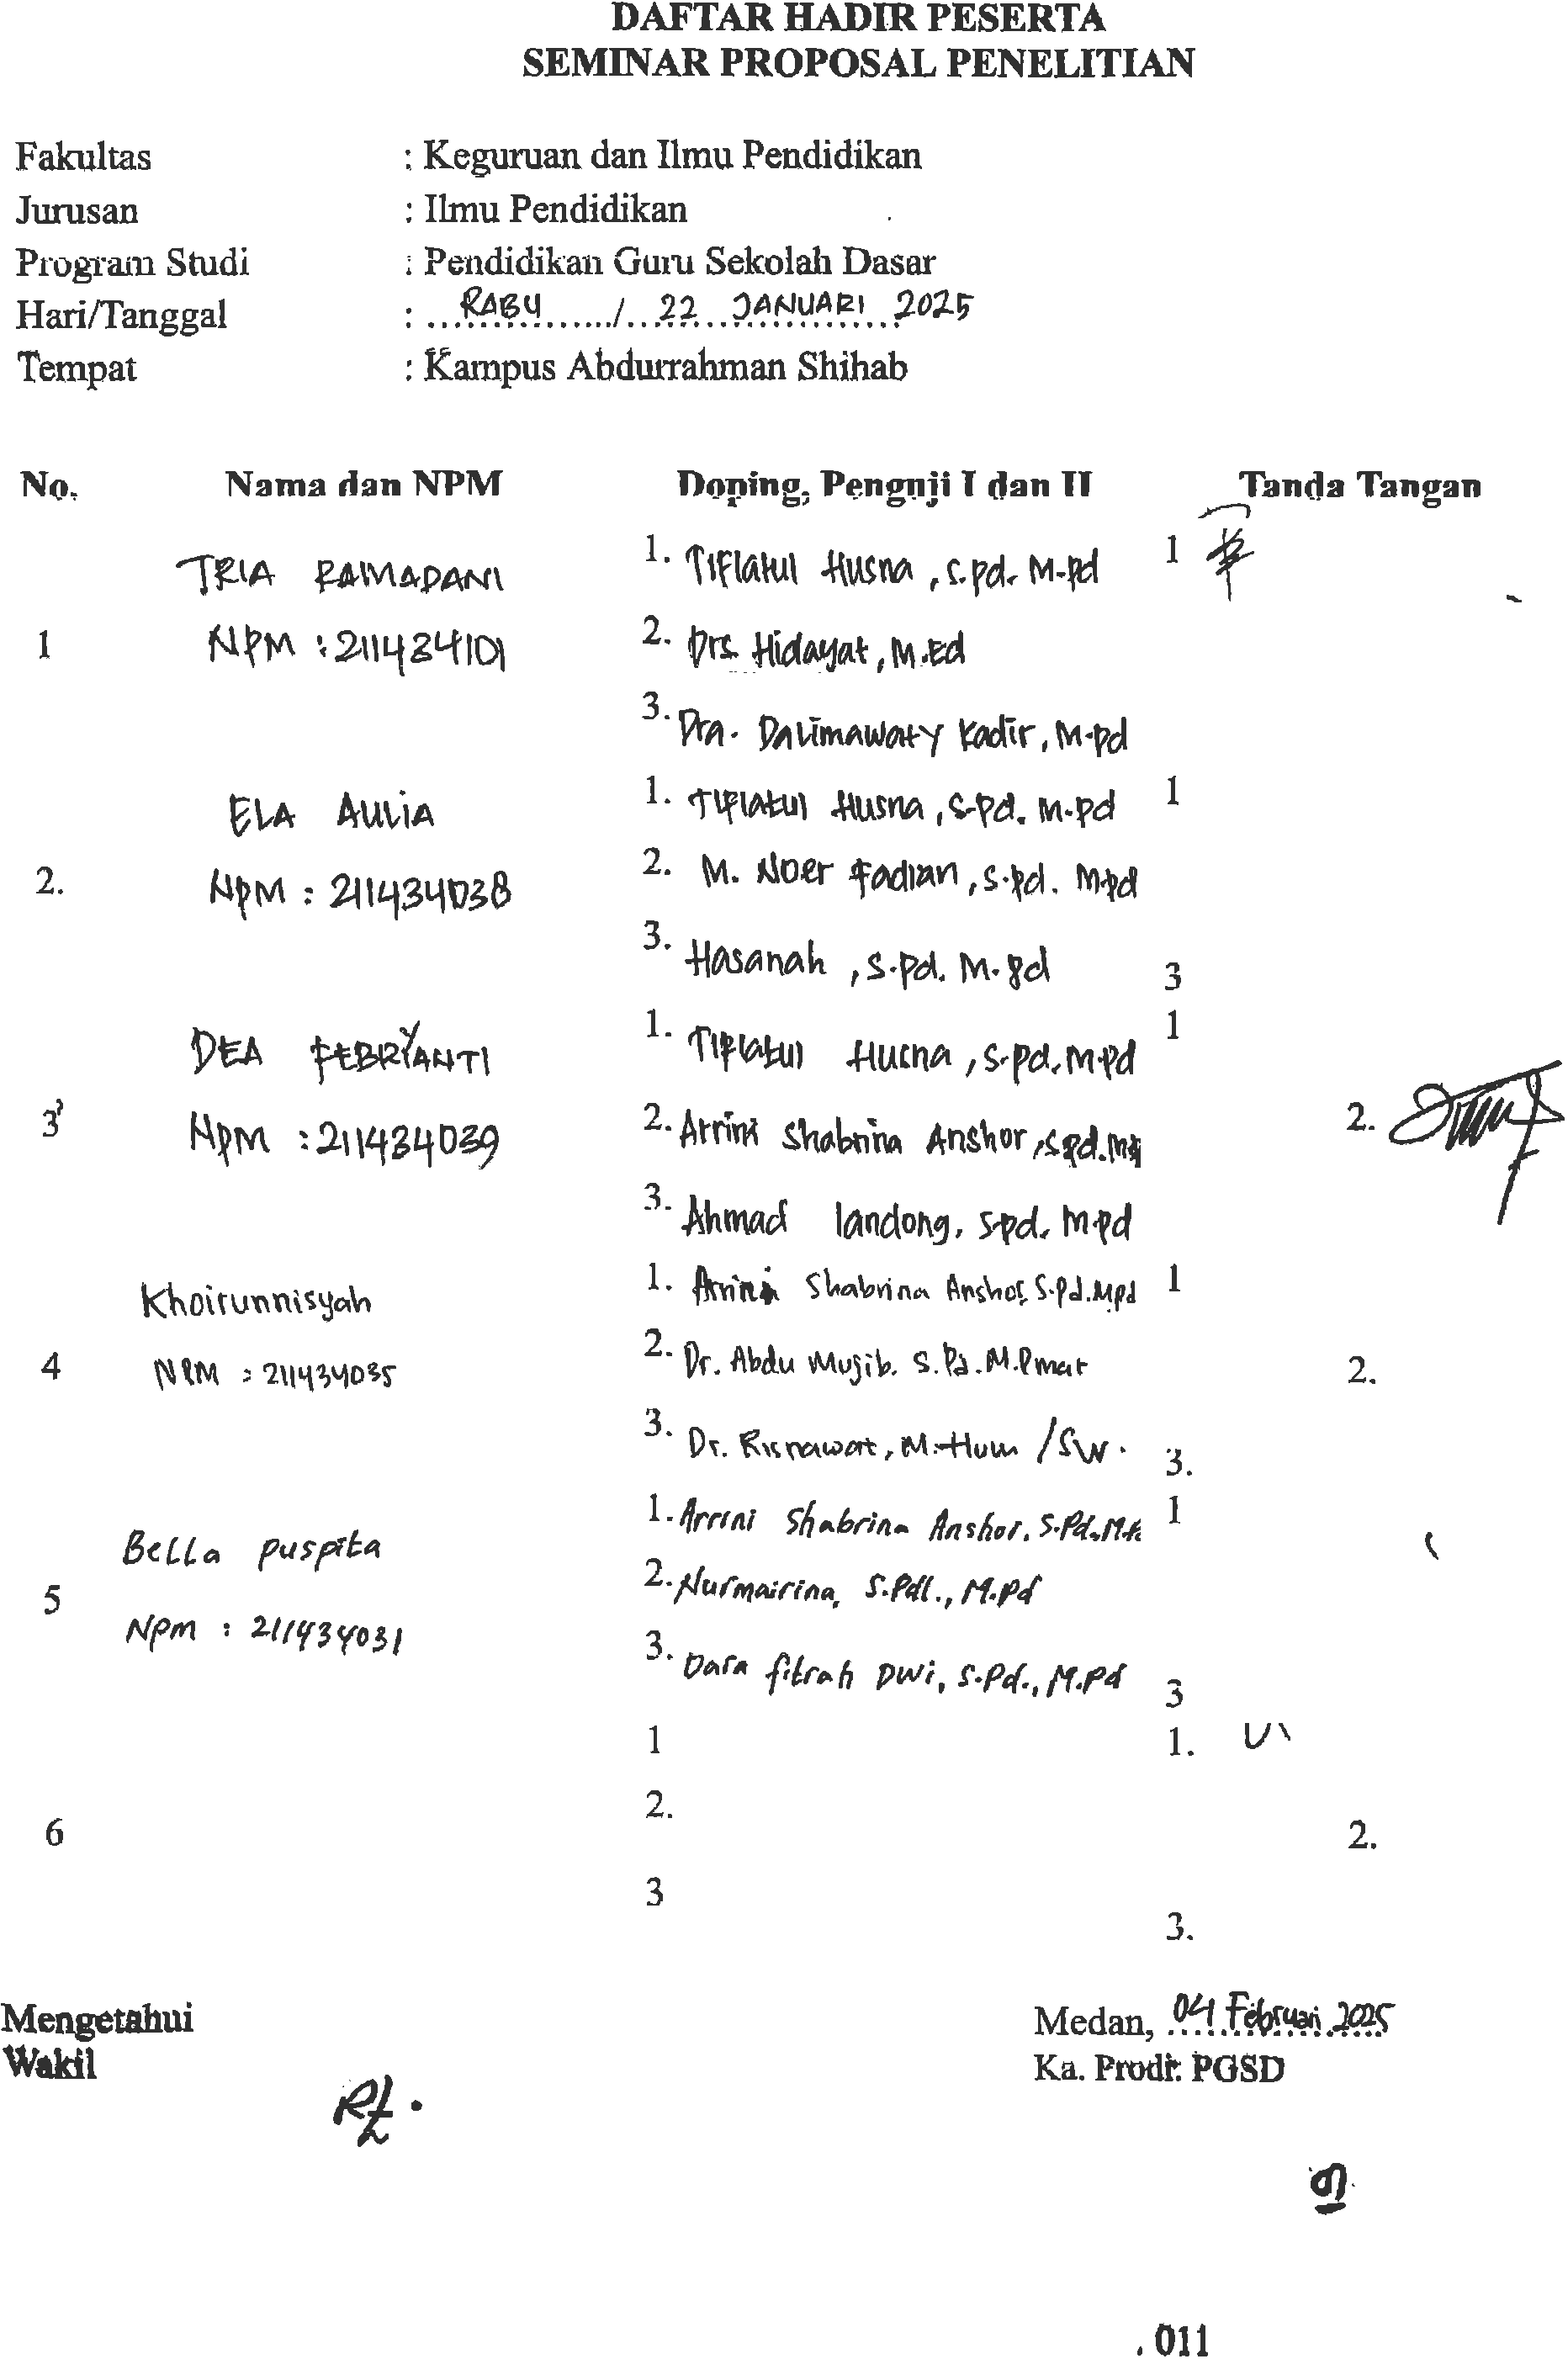 DAFTAR HADIR PESERTA
SEMINAR PROPOSAL PENELITIAN
Fakultas : Keguruan dan Ilmu Pendidikan
Jurusan : Ilmu Pendidikan
Program Studi : Pendidikan Guru Sekolah Dasar
Hari/Tanggal : RABU / 22 JANUARI 2025
Tempat : Kampus Abdurrahman Shihab
No. Nama dan NPM Doping, Penguji I dan II Tanda Tangan
1 TRIA RAMADANI
NPM : 211434101
1. Tiflatul Husna, S.pd. M.pd 1
2. Drs Hidayat, M.Ed
3. Dra. Dalimawaty Kadir, M.pd
2. ELA AULIA
NPM : 211434038
1. Tiflatul Husna, S.Pd. M.pd 1
2. M. Noer Fadlan, S.pd. M.pd
3. Hasanah, S.pd. M.pd 3
3 DEA FEBRYANTI
NPM : 211434039
1. Tiflatul Husna, S.pd. M.pd 1
2. Arrini Shabrina Anshor, S.pd. 2.
3. Ahmad landong, S.pd. M.pd
4 Khoirunnisyah
NPM : 211434035
1. Arrini Shabrina Anshor, S.Pd. Mpd 1
2. Dr. Abdu Mujib. S.Pd. M.Pmat 2.
3. Dr. Risnawat, M.Hum /SW. 3.
5 Bella puspita
Npm : 211434031
1. Arrini Shabrina Anshor, S.Pd, 1
2. Nurmairina, S.PdI., M.Pd
3. Dara fitrah DWi, S.Pd., M.Pd 3
6
1 1.
2. 2.
3 3.
Mengetahui
Wakil
Medan, 04 Februari 2025
Ka. Prodi PGSD
011